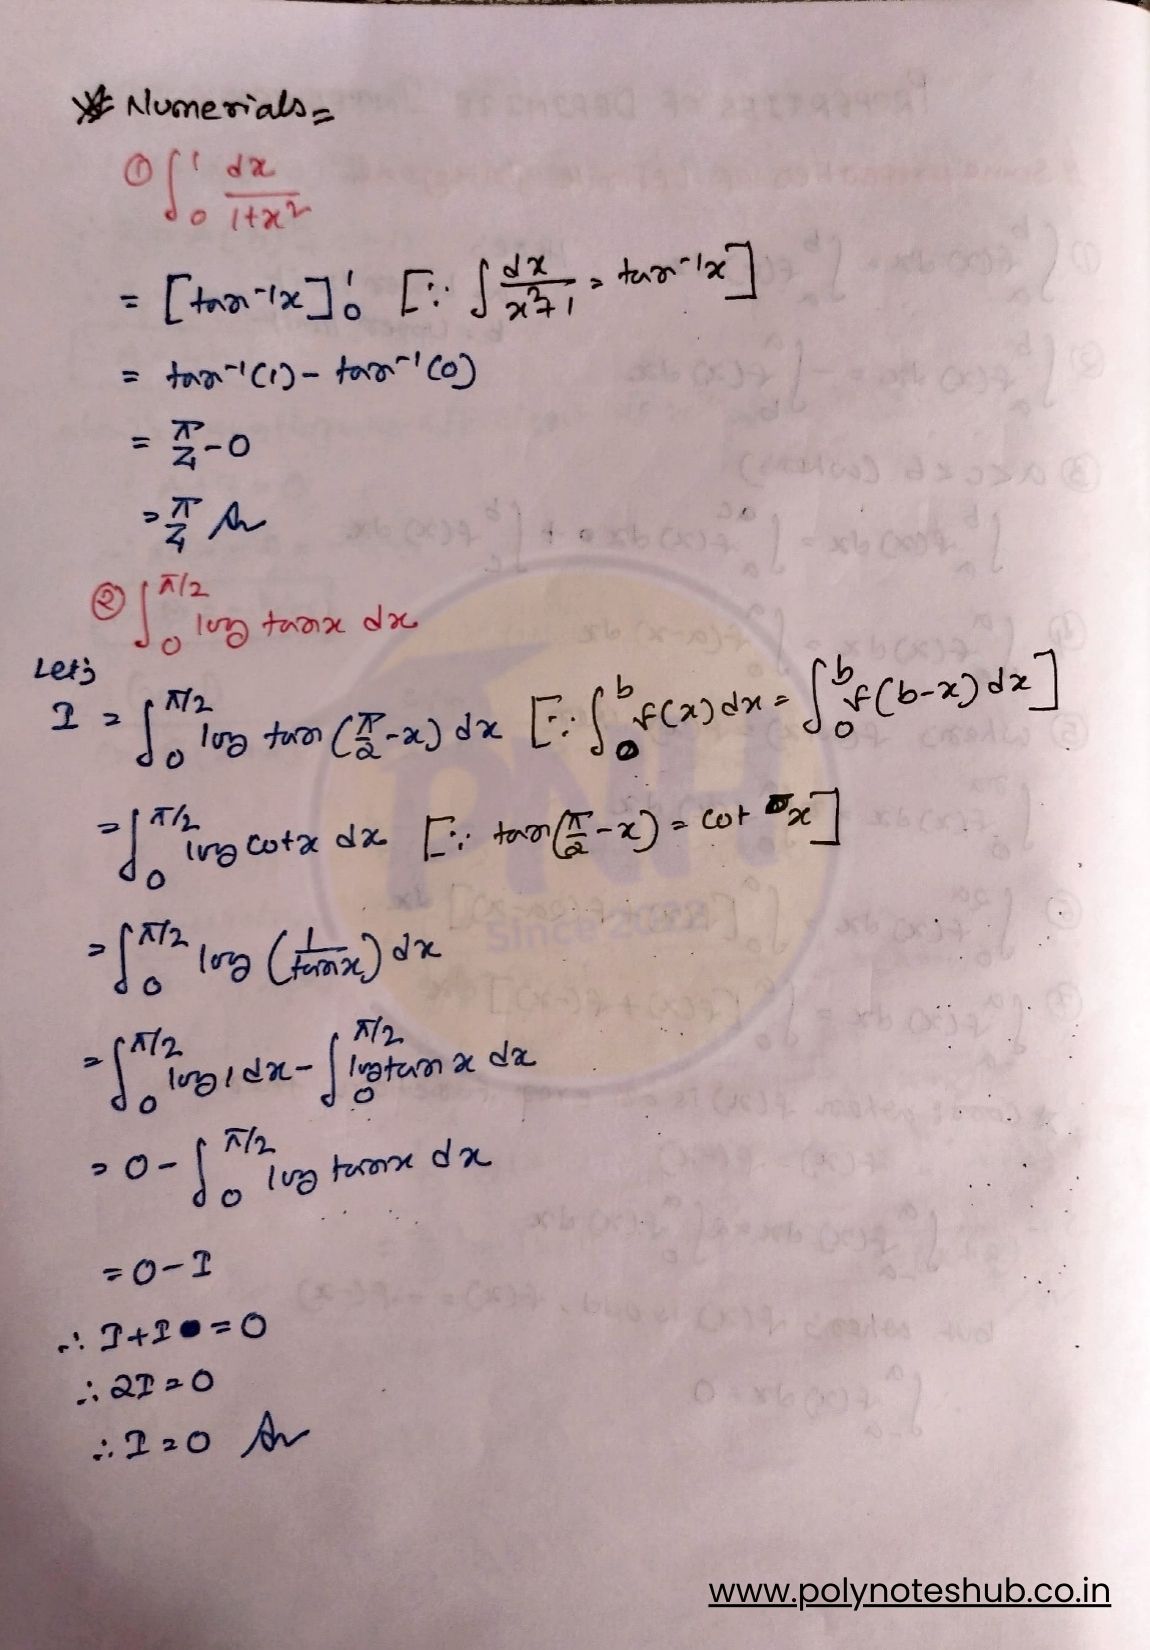 * Numerials =
① ∫₀¹ dx/1+x²
= [tan⁻¹x]₀¹ [∵ ∫ dx/x²+1 = tan⁻¹x]
= tan⁻¹(1) - tan⁻¹(0)
= π/4 - 0
= π/4 An
② ∫₀^π/2 log tanx dx
Let,
I = ∫₀^π/2 log tan (π/2 - x) dx [∵ ∫₀^b f(x) dx = ∫₀^b f(b-x) dx]
= ∫₀^π/2 log cotx dx [∵ tan(π/2 - x) = cot x]
= ∫₀^π/2 log (1/tanx) dx
= ∫₀^π/2 log 1 dx - ∫₀^π/2 log tan x dx
= 0 - ∫₀^π/2 log tanx dx
= 0 - I
∴ I + I = 0
∴ 2I = 0
∴ I = 0 An
PNH
Since 2022
www.polynoteshub.co.in